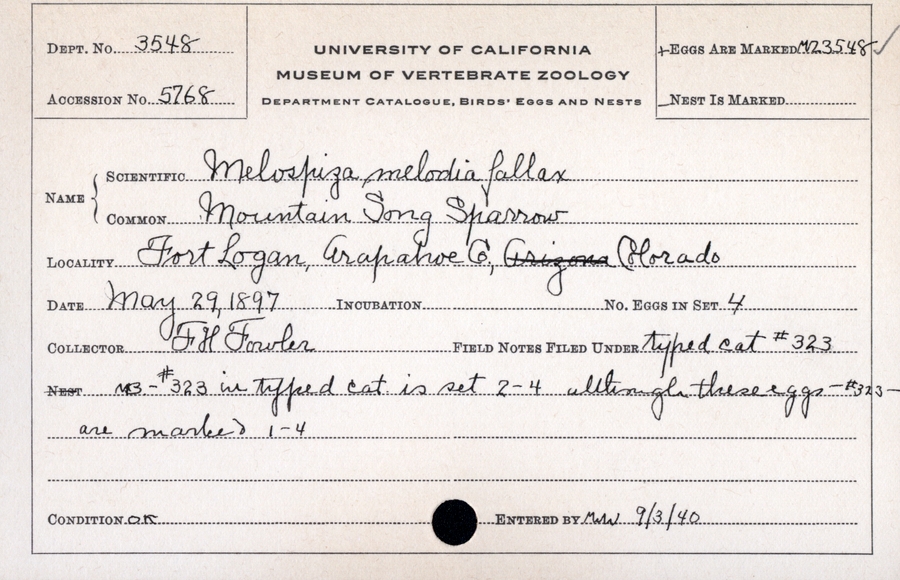 DEPT. NO. 3548
ACCESSION NO. 5768
UNIVERSITY OF CALIFORNIA
MUSEUM OF VERTEBRATE ZOOLOGY
DEPARTMENT CATALOGUE, BIRDS' EGGS AND NESTS
+EGGS ARE MARKED MZ3548 ✓
NEST IS MARKED
NAME
SCIENTIFIC Melospiza melodia fallax
COMMON Mountain Song Sparrow
LOCALITY Fort Logan, Arapahoe Co., Arizona Colorado
DATE May 29, 1897 INCUBATION NO. EGGS IN SET 4
COLLECTOR F H Fowler FIELD NOTES FILED UNDER typed cat #323
NEST - #323 in typed cat. is set 2-4 although these eggs - #323 -
are marked 1-4
CONDITION OK ENTERED BY 9/3/40